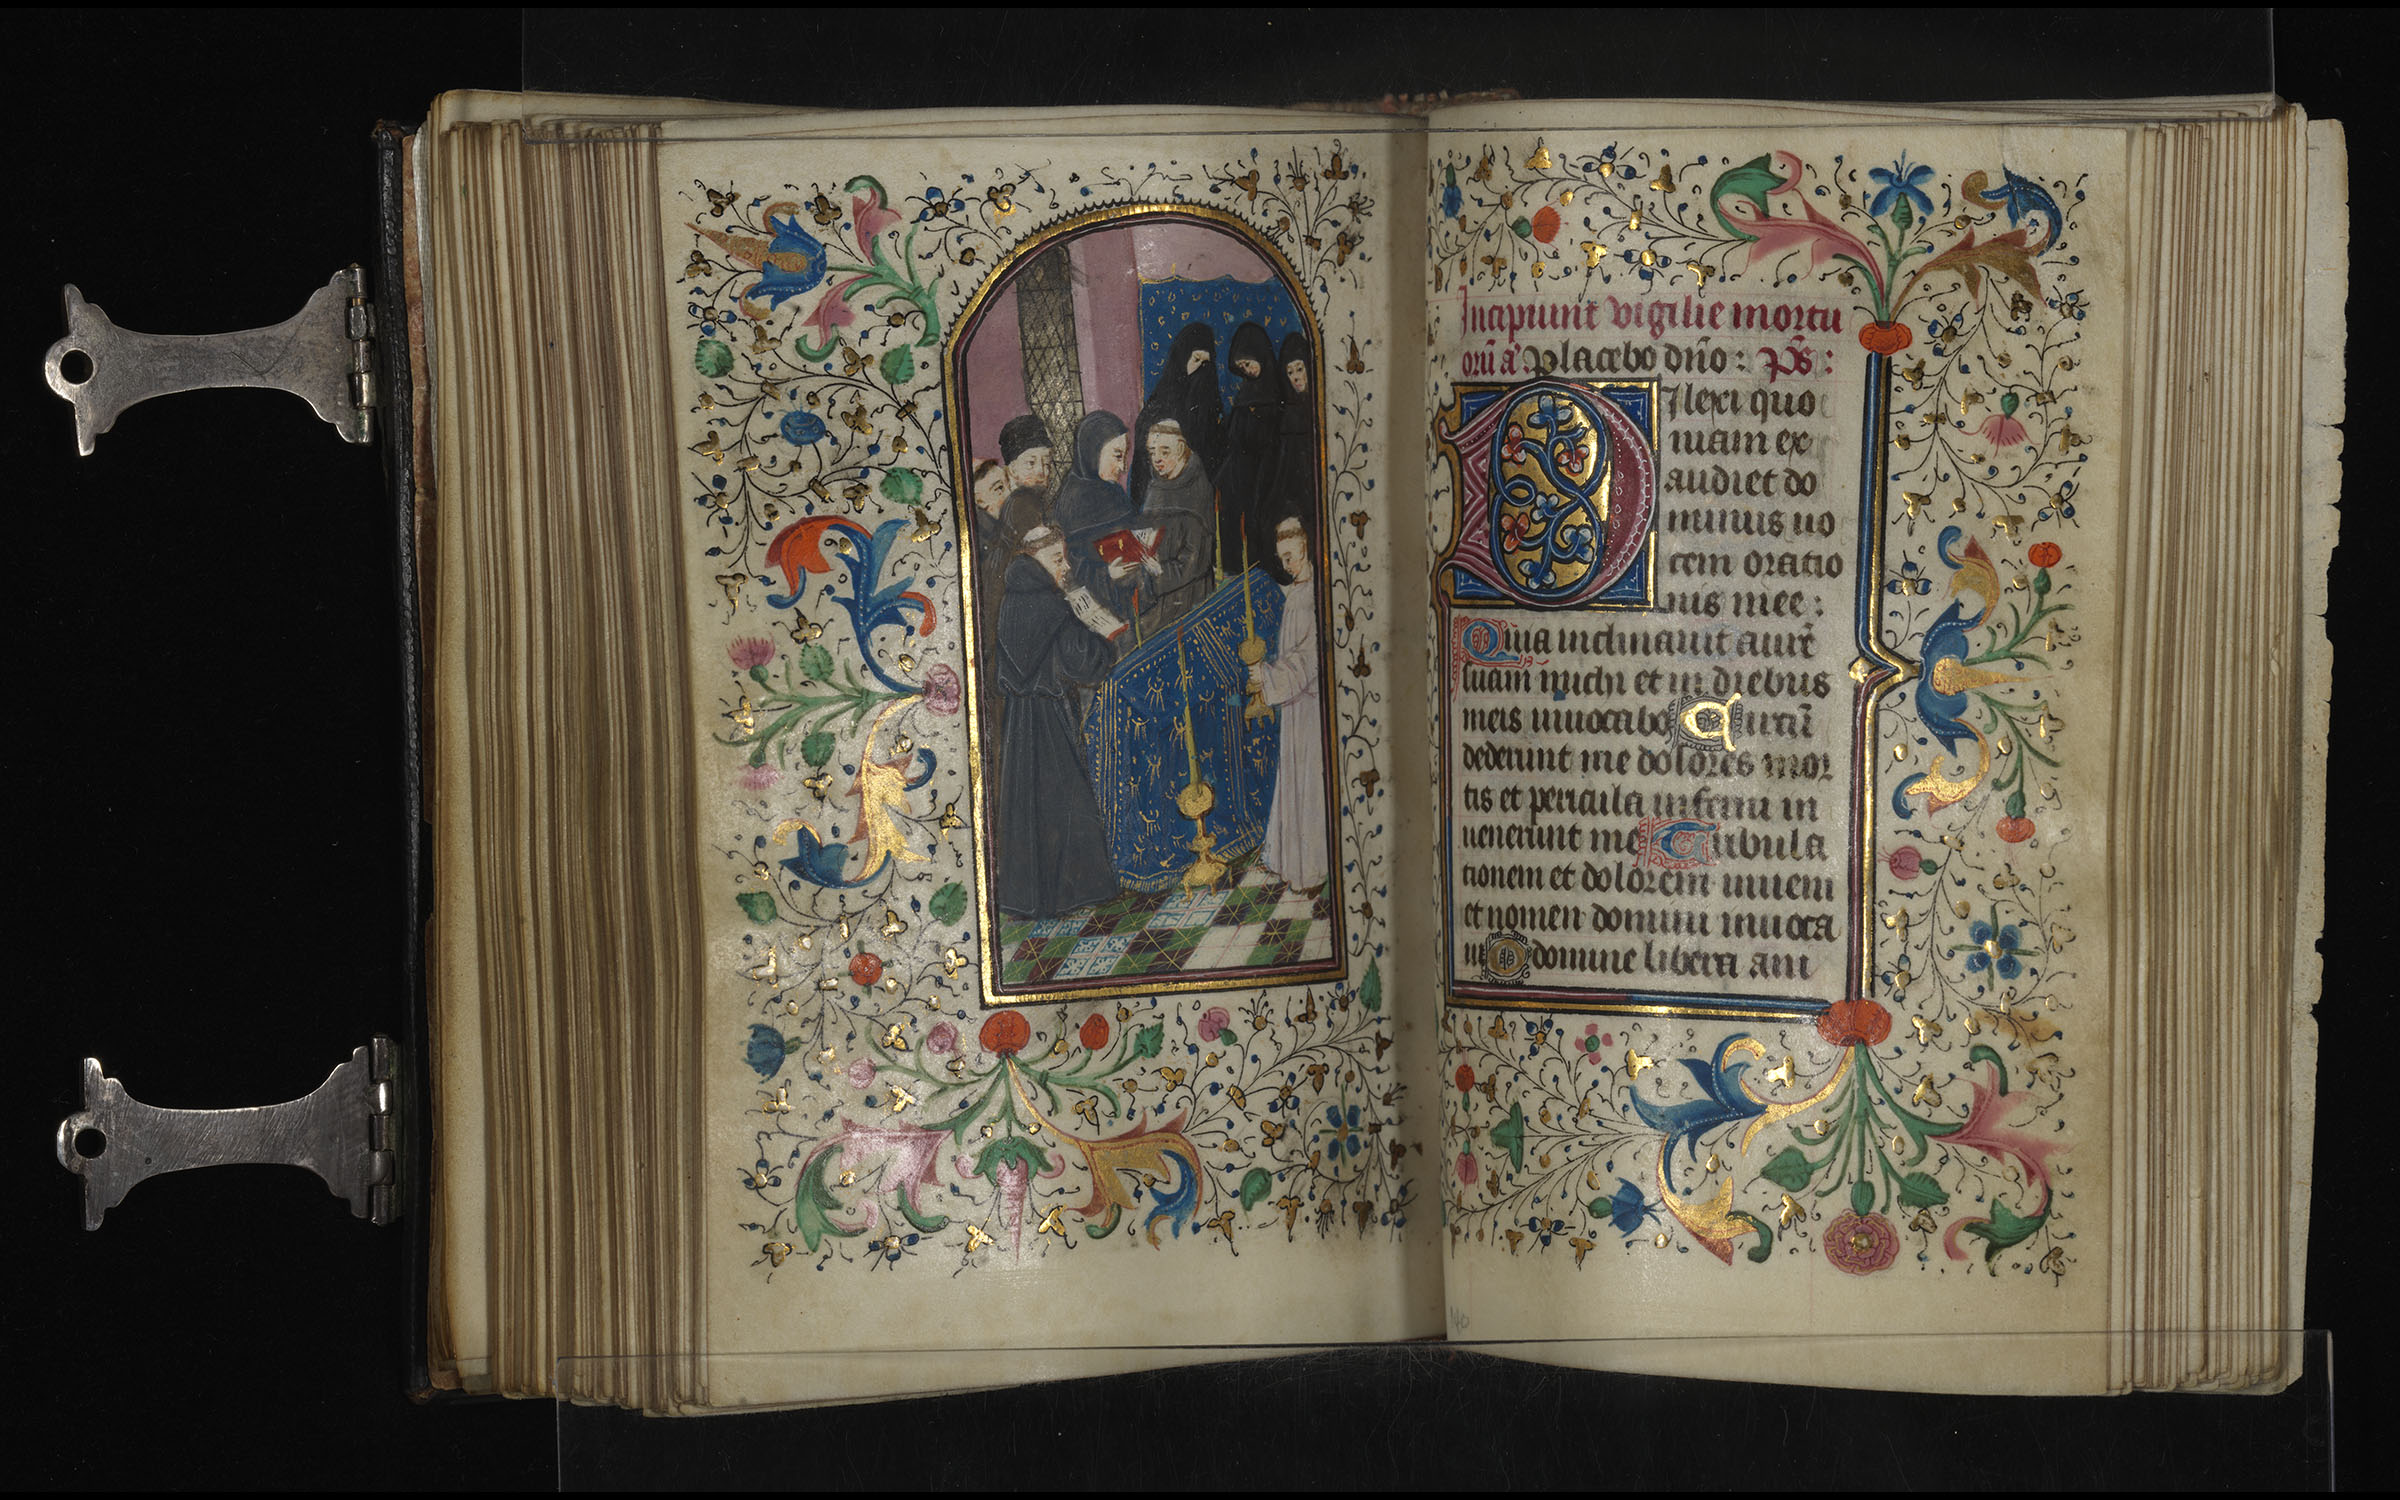 Incipiunt vigilie mortu
oru͂ a͂ Placebo dn͂o : ps͂ :
Dilexi quo
niam ex
audiet do
minus uo
cem oratio
nis mee :
Quia inclinauit aure͂
suam michi et in diebus
meis inuocabo Circu͂
dederunt me dolores mor
tis et pericula inferni in
uenerunt me Tribula
tionem et dolorem inueni
et nomen domini inuoca
ui O domine libera ani
140